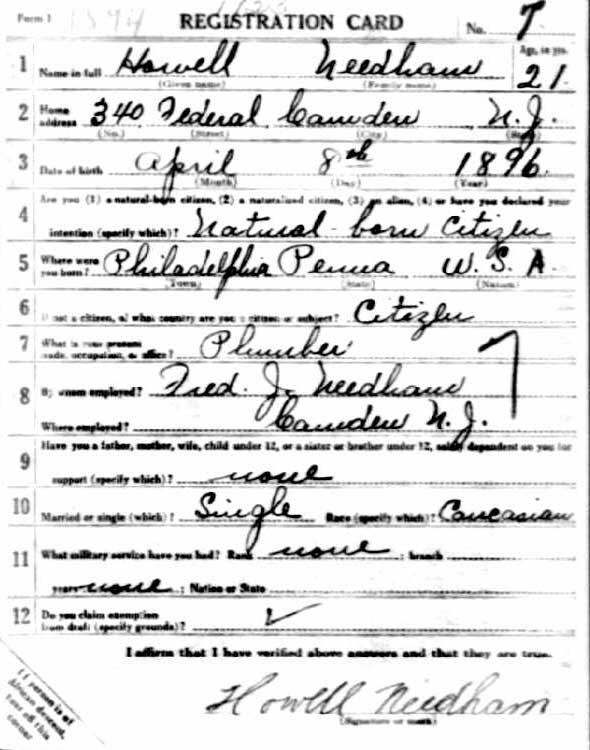 Form 1 REGISTRATION CARD No. 7
1 Name in full Howell Needham Age, in yrs. 21
(Given name) (Family name)
2 Home address 340 Federal Camden N.J.
(No.) (Street) (City) (State)
3 Date of birth April 8th 1896
(Month) (Day) (Year)
Are you (1) a natural-born citizen, (2) a naturalized citizen, (3) an alien, (4) or have you declared your
4 intention (specify which)? Natural-born Citizen
5 Where were you born? Philadelphia Penna U.S.A.
(Town) (State) (Nation)
6 If not a citizen, of what country are you a citizen or subject? Citizen
7 What is your present trade, occupation, or office? Plumber
8 By whom employed? Fred. J. Needham
Where employed? Camden N.J.
Have you a father, mother, wife, child under 12, or a sister or brother under 12, solely dependent on you for
9 support (specify which)? none
10 Married or single (which)? Single Race (specify which)? Caucasian
11 What military service have you had? Rank none ; branch
years none ; Nation or State
12 Do you claim exemption from draft (specify grounds)?
I affirm that I have verified above answers and that they are true.
Howell Needham
(Signature or mark)
If person is of
African descent,
tear off this
corner